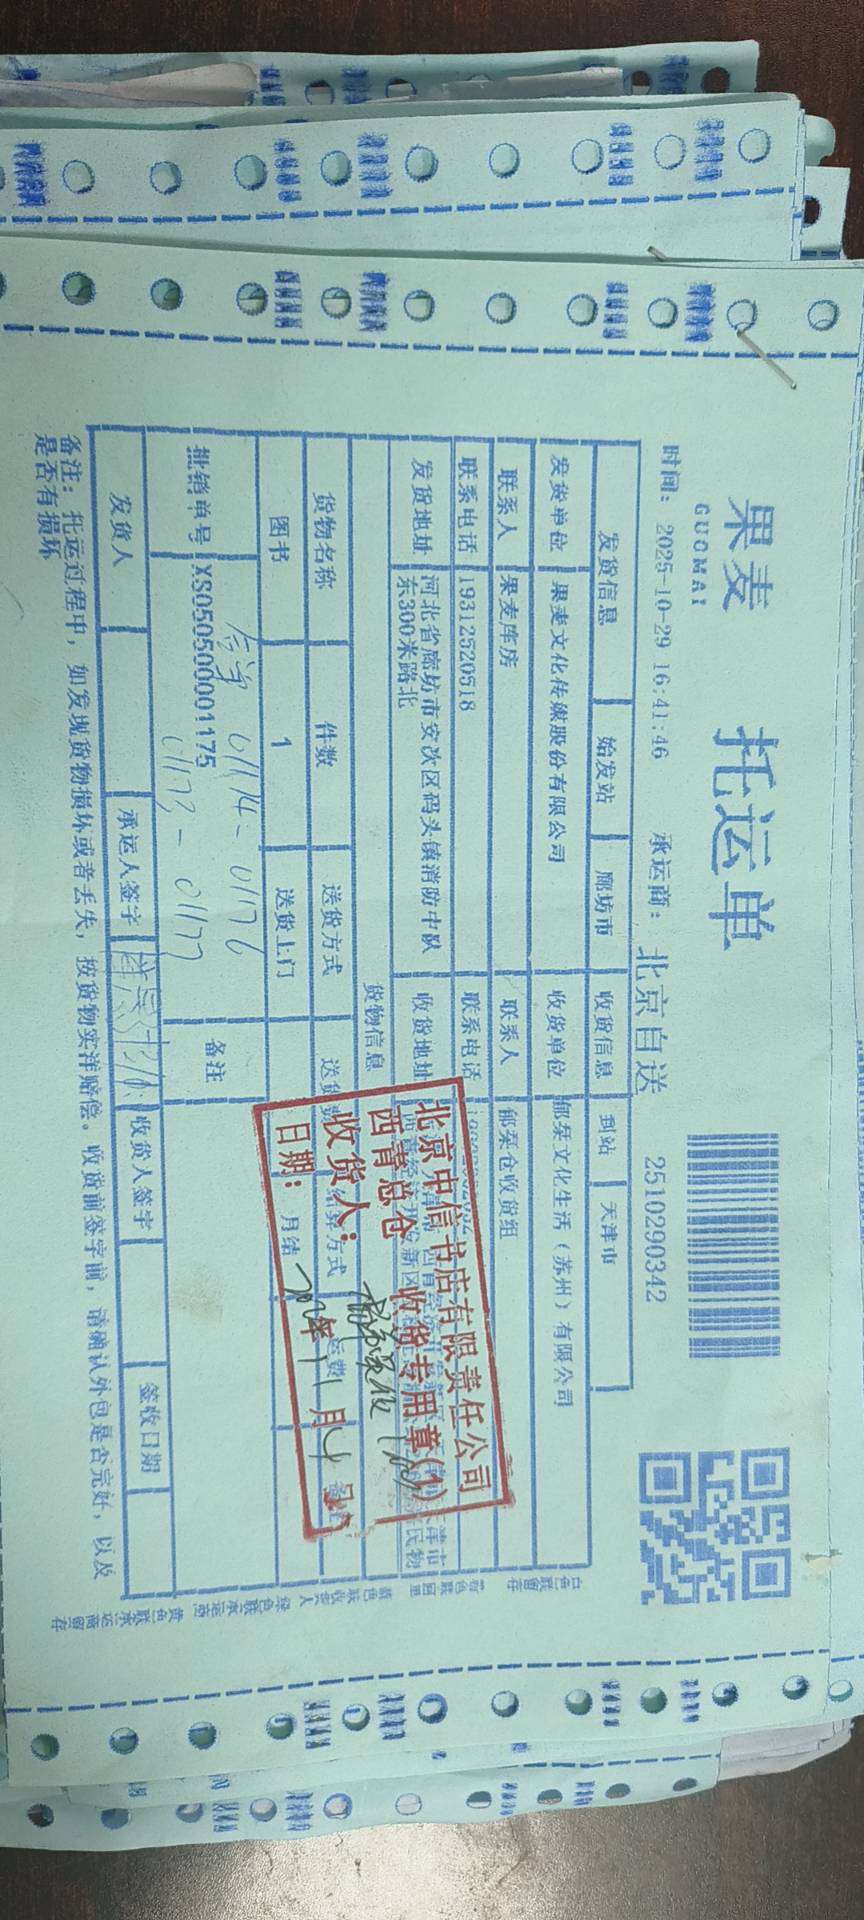 果麦
GUOMAI
托运单
时间: 2025-10-29 16:41:46 承运商: 北京自送 2510290342
发货信息 始发站 廊坊市 收货信息 到站 天津市
发货单位 果麦文化传媒股份有限公司 收货单位 郁栞文化生活（苏州）有限公司
联系人 果麦库房 联系人 郁栞仓收货组
联系电话 19312520518 联系电话
发货地址 河北省廊坊市安次区码头镇消防中队东300米路北 收货地址
货物信息
货物名称 件数 送货方式 结算方式 运费 备注
图书 1 送货上门 月结
批销单号 XS050500001175 备注
合单 01174-01176
01173-01177
发货人 承运人签字 收货人签字 签收日期
备注: 托运过程中, 如发现货物损坏或者丢失, 按货物实洋赔偿。收货前签字前, 请确认外包是否完好, 以及
是否有损坏
北京中信书店有限责任公司
西青总仓 收货专用章(1)
收货人:
日期: 年11月4号
白色联留存
黄色联承运商留存